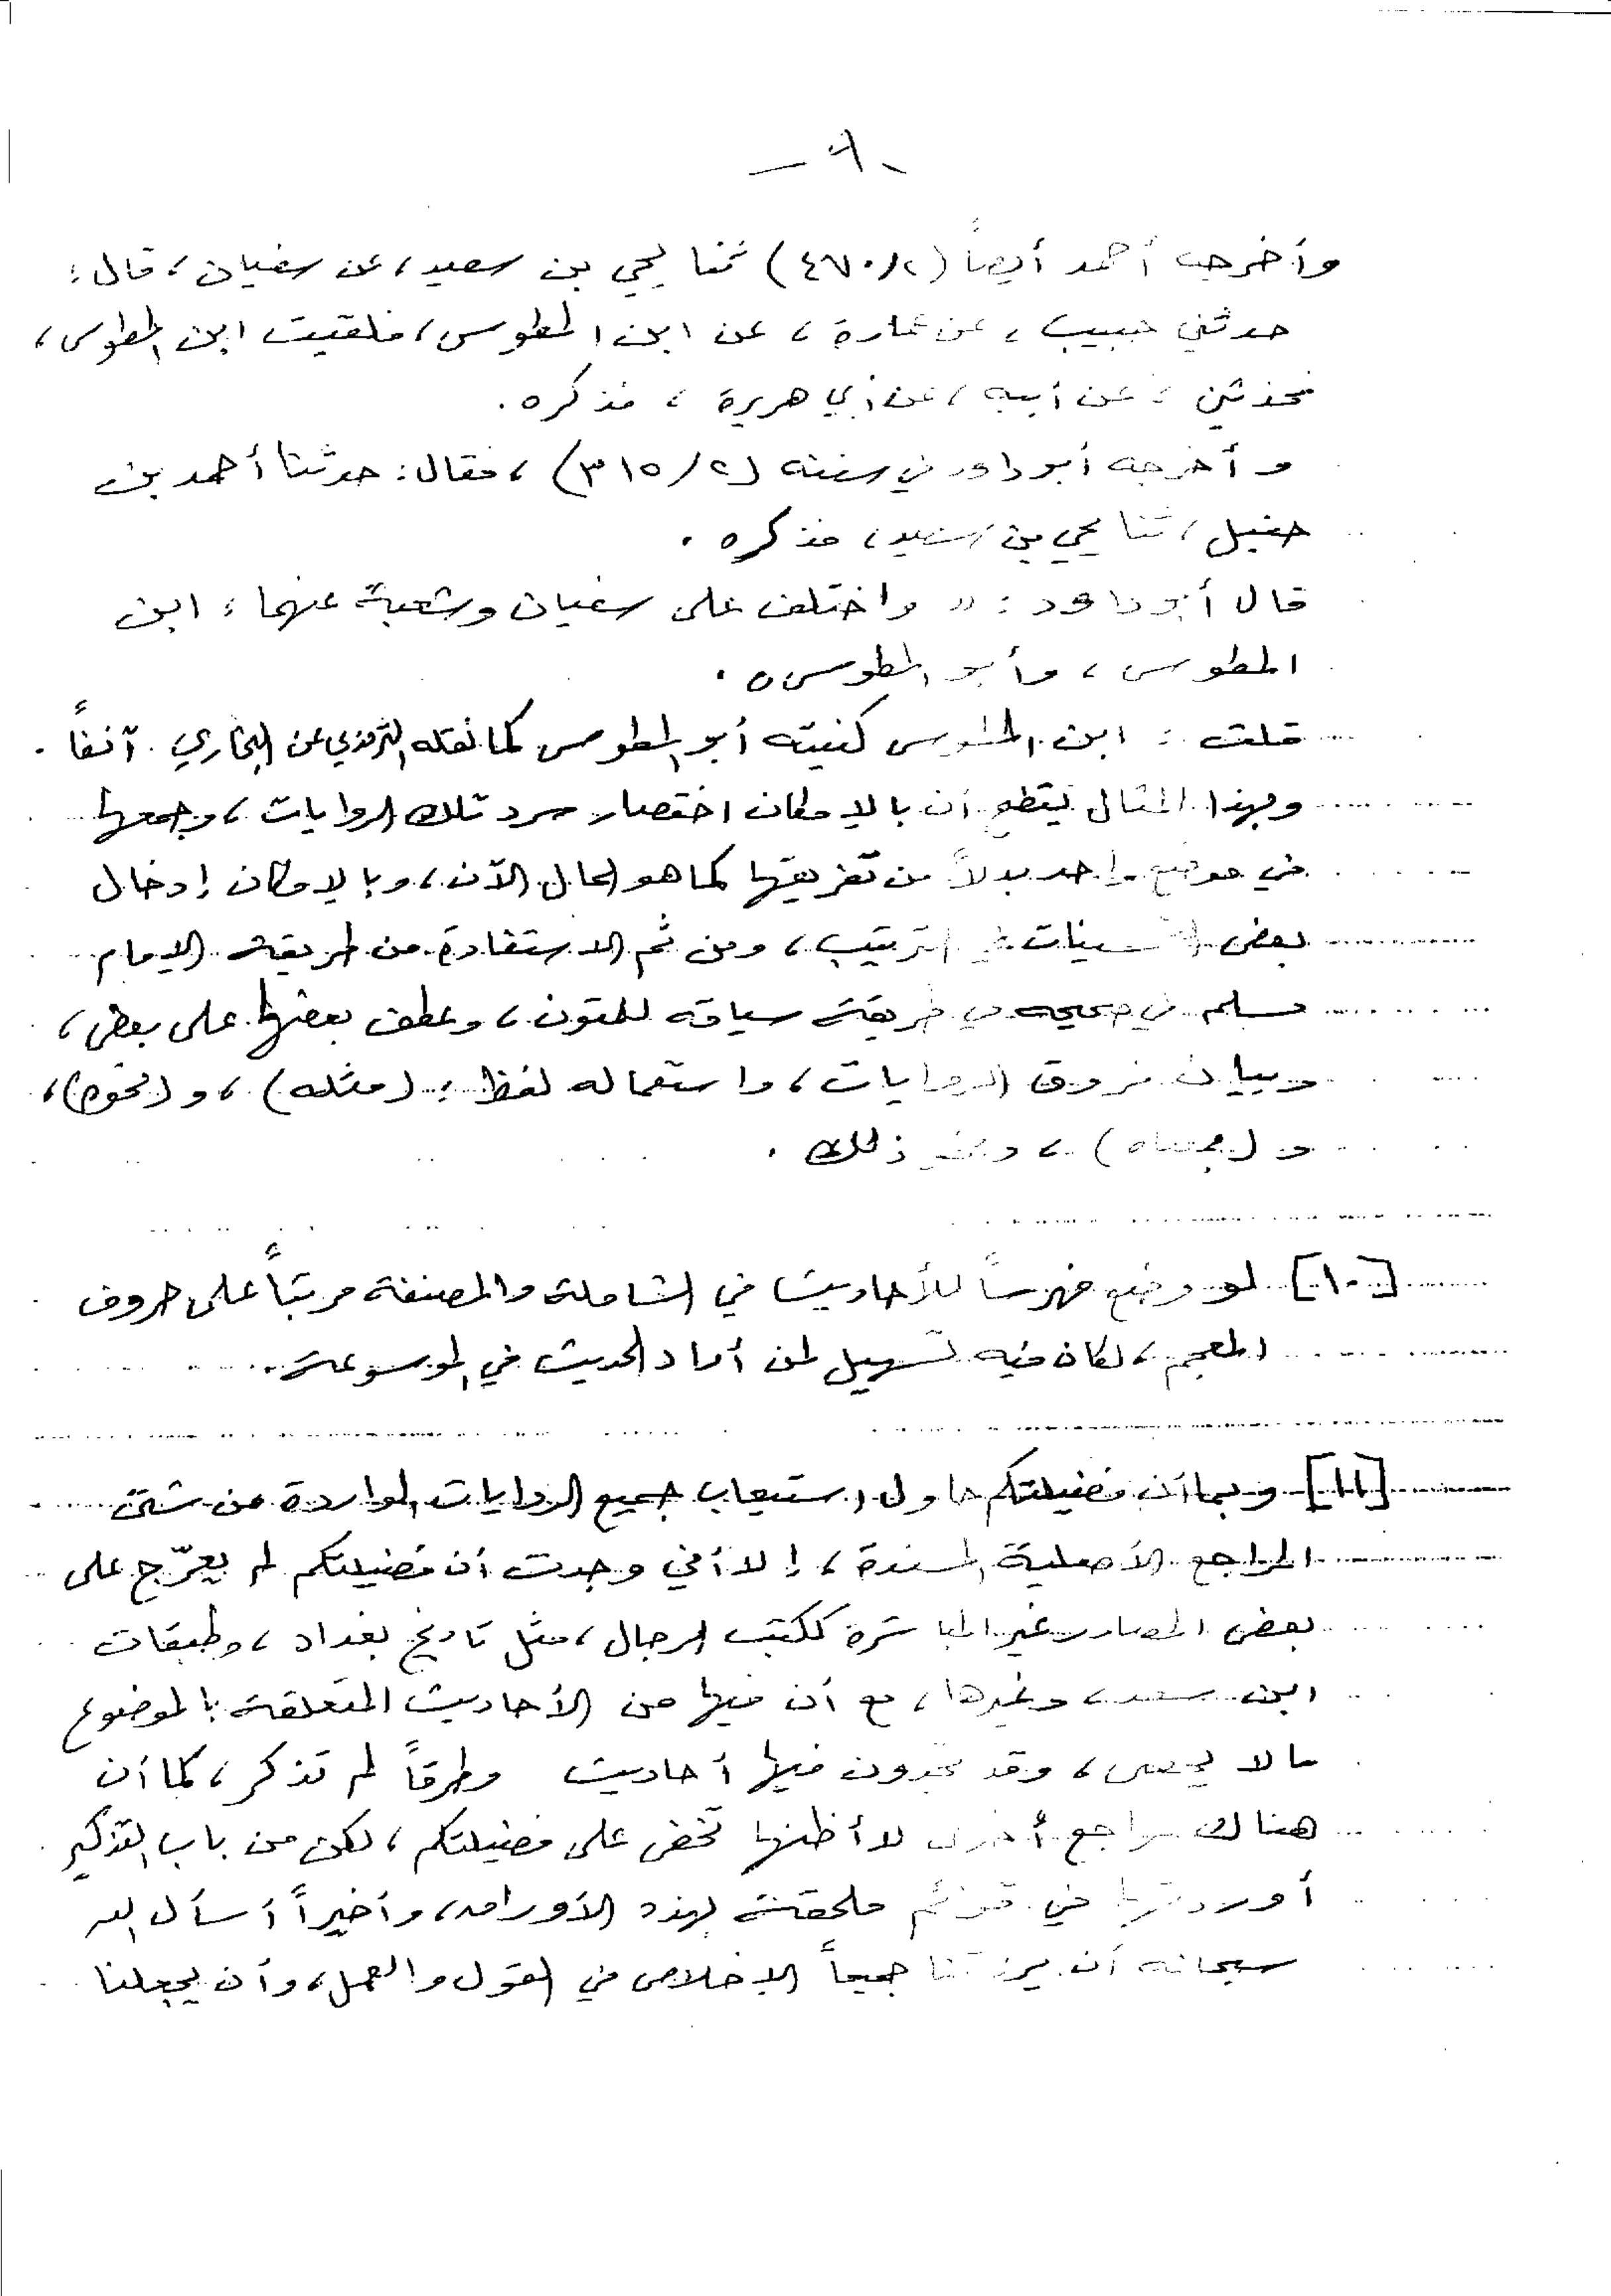 - ٩ -
وأخرجه أحمد أيضاً (٤٧٠/٢) ثنا يحيى بن سعيد، عن سفيان، قال:
حدثني حبيب، عن عمارة، عن ابن المطوس، فلقيت ابن المطوس،
فحدثني، عن أبيه، عن أبي هريرة، فذكره.
وأخرجه أبو داود في سننه (٣١٥/٢)، فقال: حدثنا أحمد بن
حنبل، ثنا يحيى بن سعيد، فذكره.
قال أبو داود: «واختلف على سفيان وشعبة عنهما: ابن
المطوس، وأبو المطوس».
قلت: ابن المطوس كنيته أبو المطوس كما نقله الترمذي عن البخاري آنفاً.
وبهذا المثال يتضح أن بالإمكان اختصار سرد تلك الروايات، وجمعها
في موضع واحد بدلاً من تفريقها كما هو الحال الآن، وبالإمكان إدخال
بعض التحسينات في الترتيب، ومن ثم الاستفادة من طريقة الإمام
مسلم في صحيحه في طريقة سياقه للمتون، وعطف بعضها على بعض،
وبيان فروق الروايات، واستعماله لفظ: (مثله)، و(نحوه)،
و(بمعناه)، وغير ذلك.
[١٠] لو وضع فهرساً للأحاديث في الشاملة والمصنفة مرتباً على حروف
المعجم، لكان فيه تسهيل لمن أراد الحديث في الموسوعة.
[١١] وبما أن فضيلتكم حاول استيعاب جميع الروايات الواردة من شتى
المراجع الأصلية المسندة، إلا أني وجدت أن فضيلتكم لم يعرّج على
بعض المصادر غير المباشرة ككتب الرجال، مثل تاريخ بغداد، وطبقات
ابن سعد، وغيرها، مع أن فيها من الأحاديث المتعلقة بالموضوع
ما لا يحصى، وقد تجدون فيها أحاديث وطرقاً لم تذكر، كما أن
هناك مراجع أخرى لا أظنها تخفى على فضيلتكم، لكن من باب التذكير
أوردتها في قوائم ملحقة بهذه الأوراق، وأخيراً أسأل الله
سبحانه أن يرزقنا جميعاً الإخلاص في القول والعمل، وأن يجعلنا